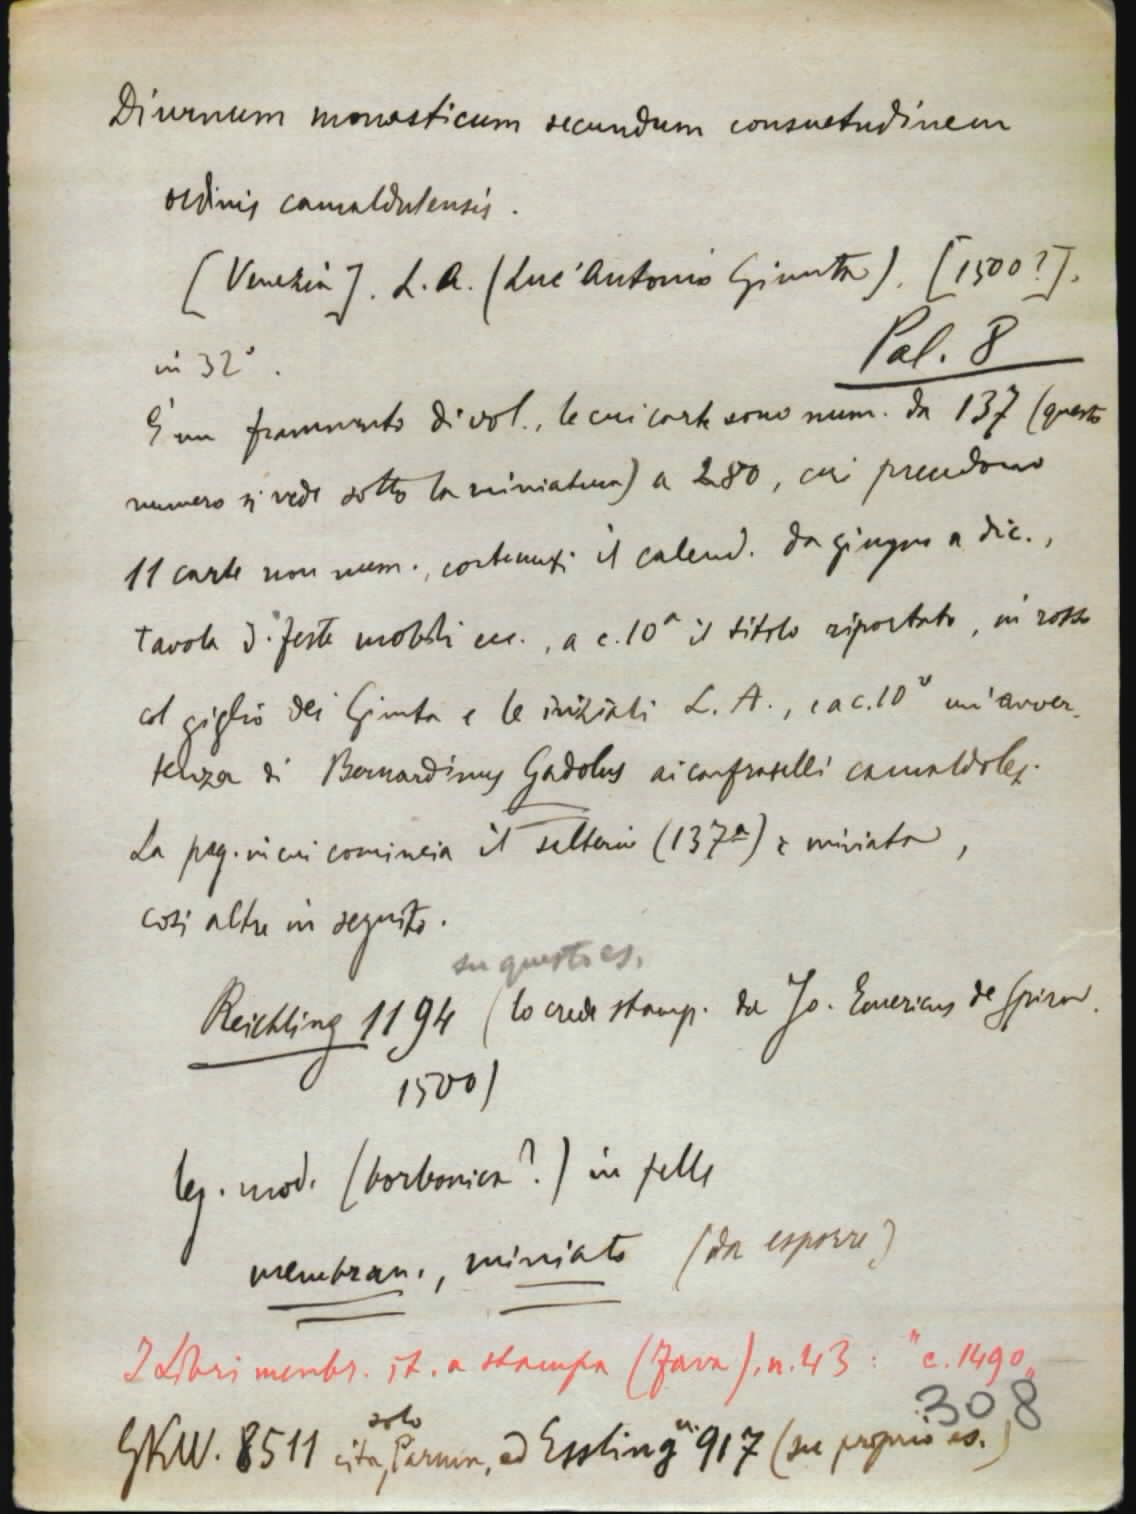 Diurnum monasticum secundum consuetudinem
ordinis camaldulensis.
[Venezia]. L. A. (Luc'Antonio Giunta), [1500?].
Pal. 8
in 32°.
È un frammento di vol., le cui carte sono num. da 137 (questo
numero si vede sotto la miniatura) a 280, cui precedono
11 carte non num., contenenti il calend. da giugno a dic.,
tavola d. feste mobili ecc., a c. 10ª il titolo riportato, in rosso
col giglio dei Giunta e le iniziali L. A., e a c. 10ᵛ un'avver-
tenza di Bernardinus Gadolus ai confratelli camaldolesi.
La pag. in cui comincia il salterio (137ª) è miniata,
così altre in seguito.
su questo es.
Reichling 1194 (lo crede stamp. da Jo. Emericus de Spira.
1500)
leg. mod. (borbonica?.) in pelle
membran., miniato (da esporre)
I Libri membr. it. a stampa (Fava), n. 43 : "c. 1490"
308
solo
GKW. 8511 cita, Parma, ed Essling n. 917 (su proprio es.)